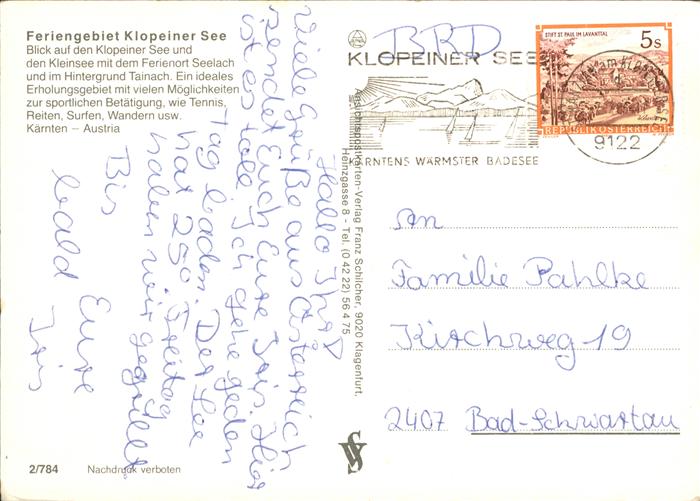 Feriengebiet Klopeiner See
Blick auf den Klopeiner See und
den Kleinsee mit dem Ferienort Seelach
und im Hintergrund Tainach. Ein ideales
Erholungsgebiet mit vielen Möglichkeiten
zur sportlichen Betätigung, wie Tennis,
Reiten, Surfen, Wandern usw.
Kärnten – Austria
Hallo Ihr!
Viele Grüße aus Österreich
sendet Euch Eure Iris. Hier
ist es toll. Ich gehe jeden
Tag baden. Der See
hat 250 Freitag
haben wir gegrillt
Bis
bald Eure
Iris
2/784 Nachdruck verboten
Ansichtspostkarten-Verlag Franz Schilcher, 9020 Klagenfurt,
Heinzgasse 8 - Tel. (0 42 22) 56 4 75
BRD
KLOPEINER SEE
KÄRNTENS WÄRMSTER BADESEE
STIFT ST. PAUL IM LAVANTTAL
5s
REPUBLIK ÖSTERREICH
9122
An
Familie Pahlke
Kirchweg 19
2407 Bad-Schwartau